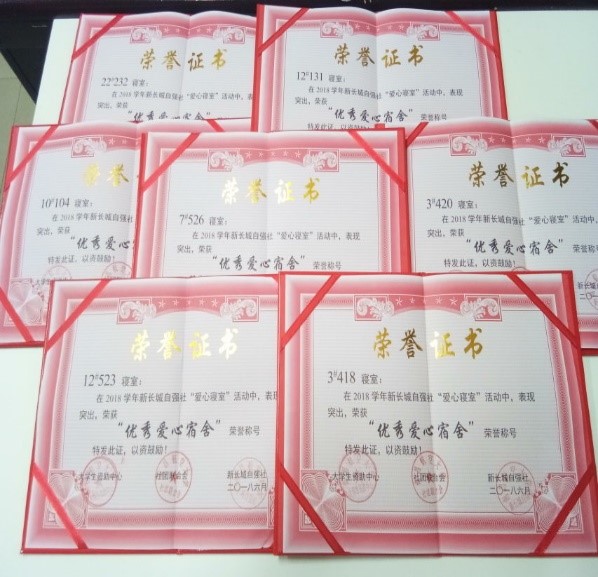 荣誉证书
22#232 寝室：
在 2018 学年新长城自强社“爱心寝室”活动中，表现
突出，荣获
“优秀爱心宿舍”
荣誉证书
12#131 寝室：
在 2018 学年新长城自强社“爱心寝室”活动中，表现
突出，荣获
“优秀爱心宿舍” 荣誉称号
特发此证，以资鼓励！
荣誉
10#104 寝室：
在 2018 学年新长城自强社
突出，荣获
“优秀爱心
特发此证，以资鼓励！
荣誉证书
7#526 寝室：
在 2018 学年新长城自强社“爱心寝室”活动中，表现
突出，荣获
“优秀爱心宿舍” 荣誉称号
特发此证，以资鼓励！
荣誉证书
3#420 寝室：
在 2018 学年新长城自强社“爱心寝室”活动中，表现
突出，荣获
“优秀爱心宿舍” 荣誉称号
特发此证，以资鼓励！
新长城
二〇一
荣誉证书
12#523 寝室：
在 2018 学年新长城自强社“爱心寝室”活动中，表现
突出，荣获
“优秀爱心宿舍” 荣誉称号
特发此证，以资鼓励！
大学生资助中心 社团联合会 新长城自强社
二〇一八六月
荣誉证书
3#418 寝室：
在 2018 学年新长城自强社“爱心寝室”活动中，表现
突出，荣获
“优秀爱心宿舍” 荣誉称号
特发此证，以资鼓励！
大学生资助中心 社团联合会 新长城自强社
二〇一八六月